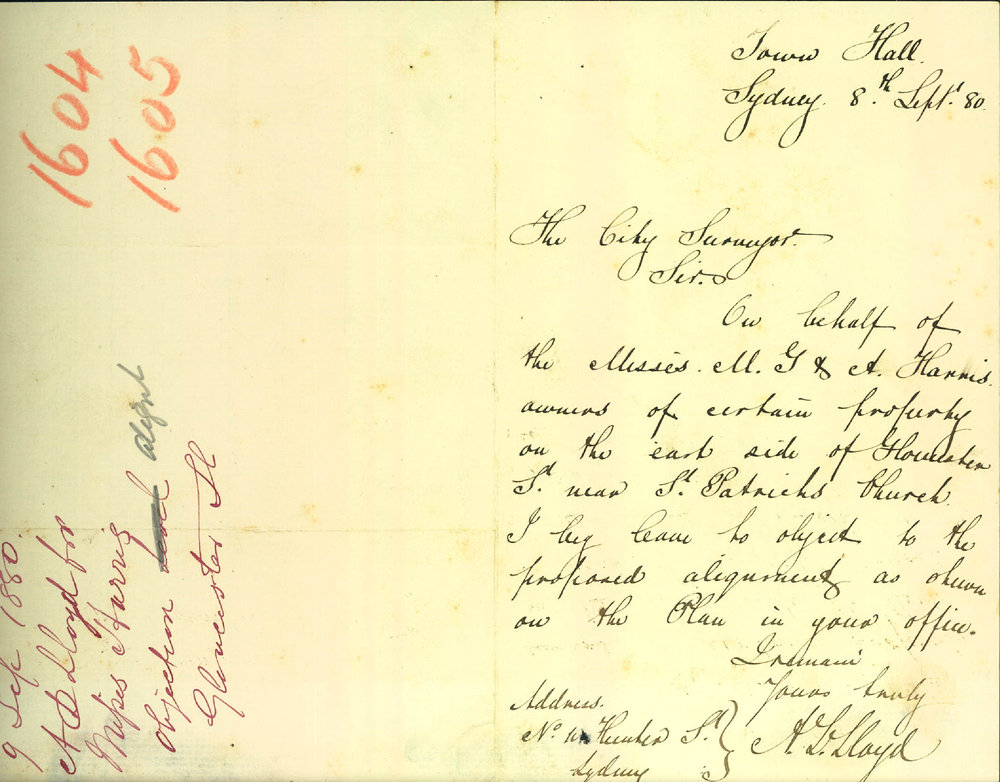 1604
1605
9 Sep 1880
A D Lloyd for
Misses Harris
objection level alignt
Gloucester St
Town Hall.
Sydney. 8th Sept. 80.
The City Surveyor.
Sir.
On behalf of
the Misses. M. G & A. Harris.
owners of certain property
on the east side of Gloucester
St. near St. Patricks Church
I beg leave to object to the
proposed alignment as shewn
on the Plan in your office.
I remain
Yours truly
A. D. Lloyd
Address.
No. Hunter St.
Sydney